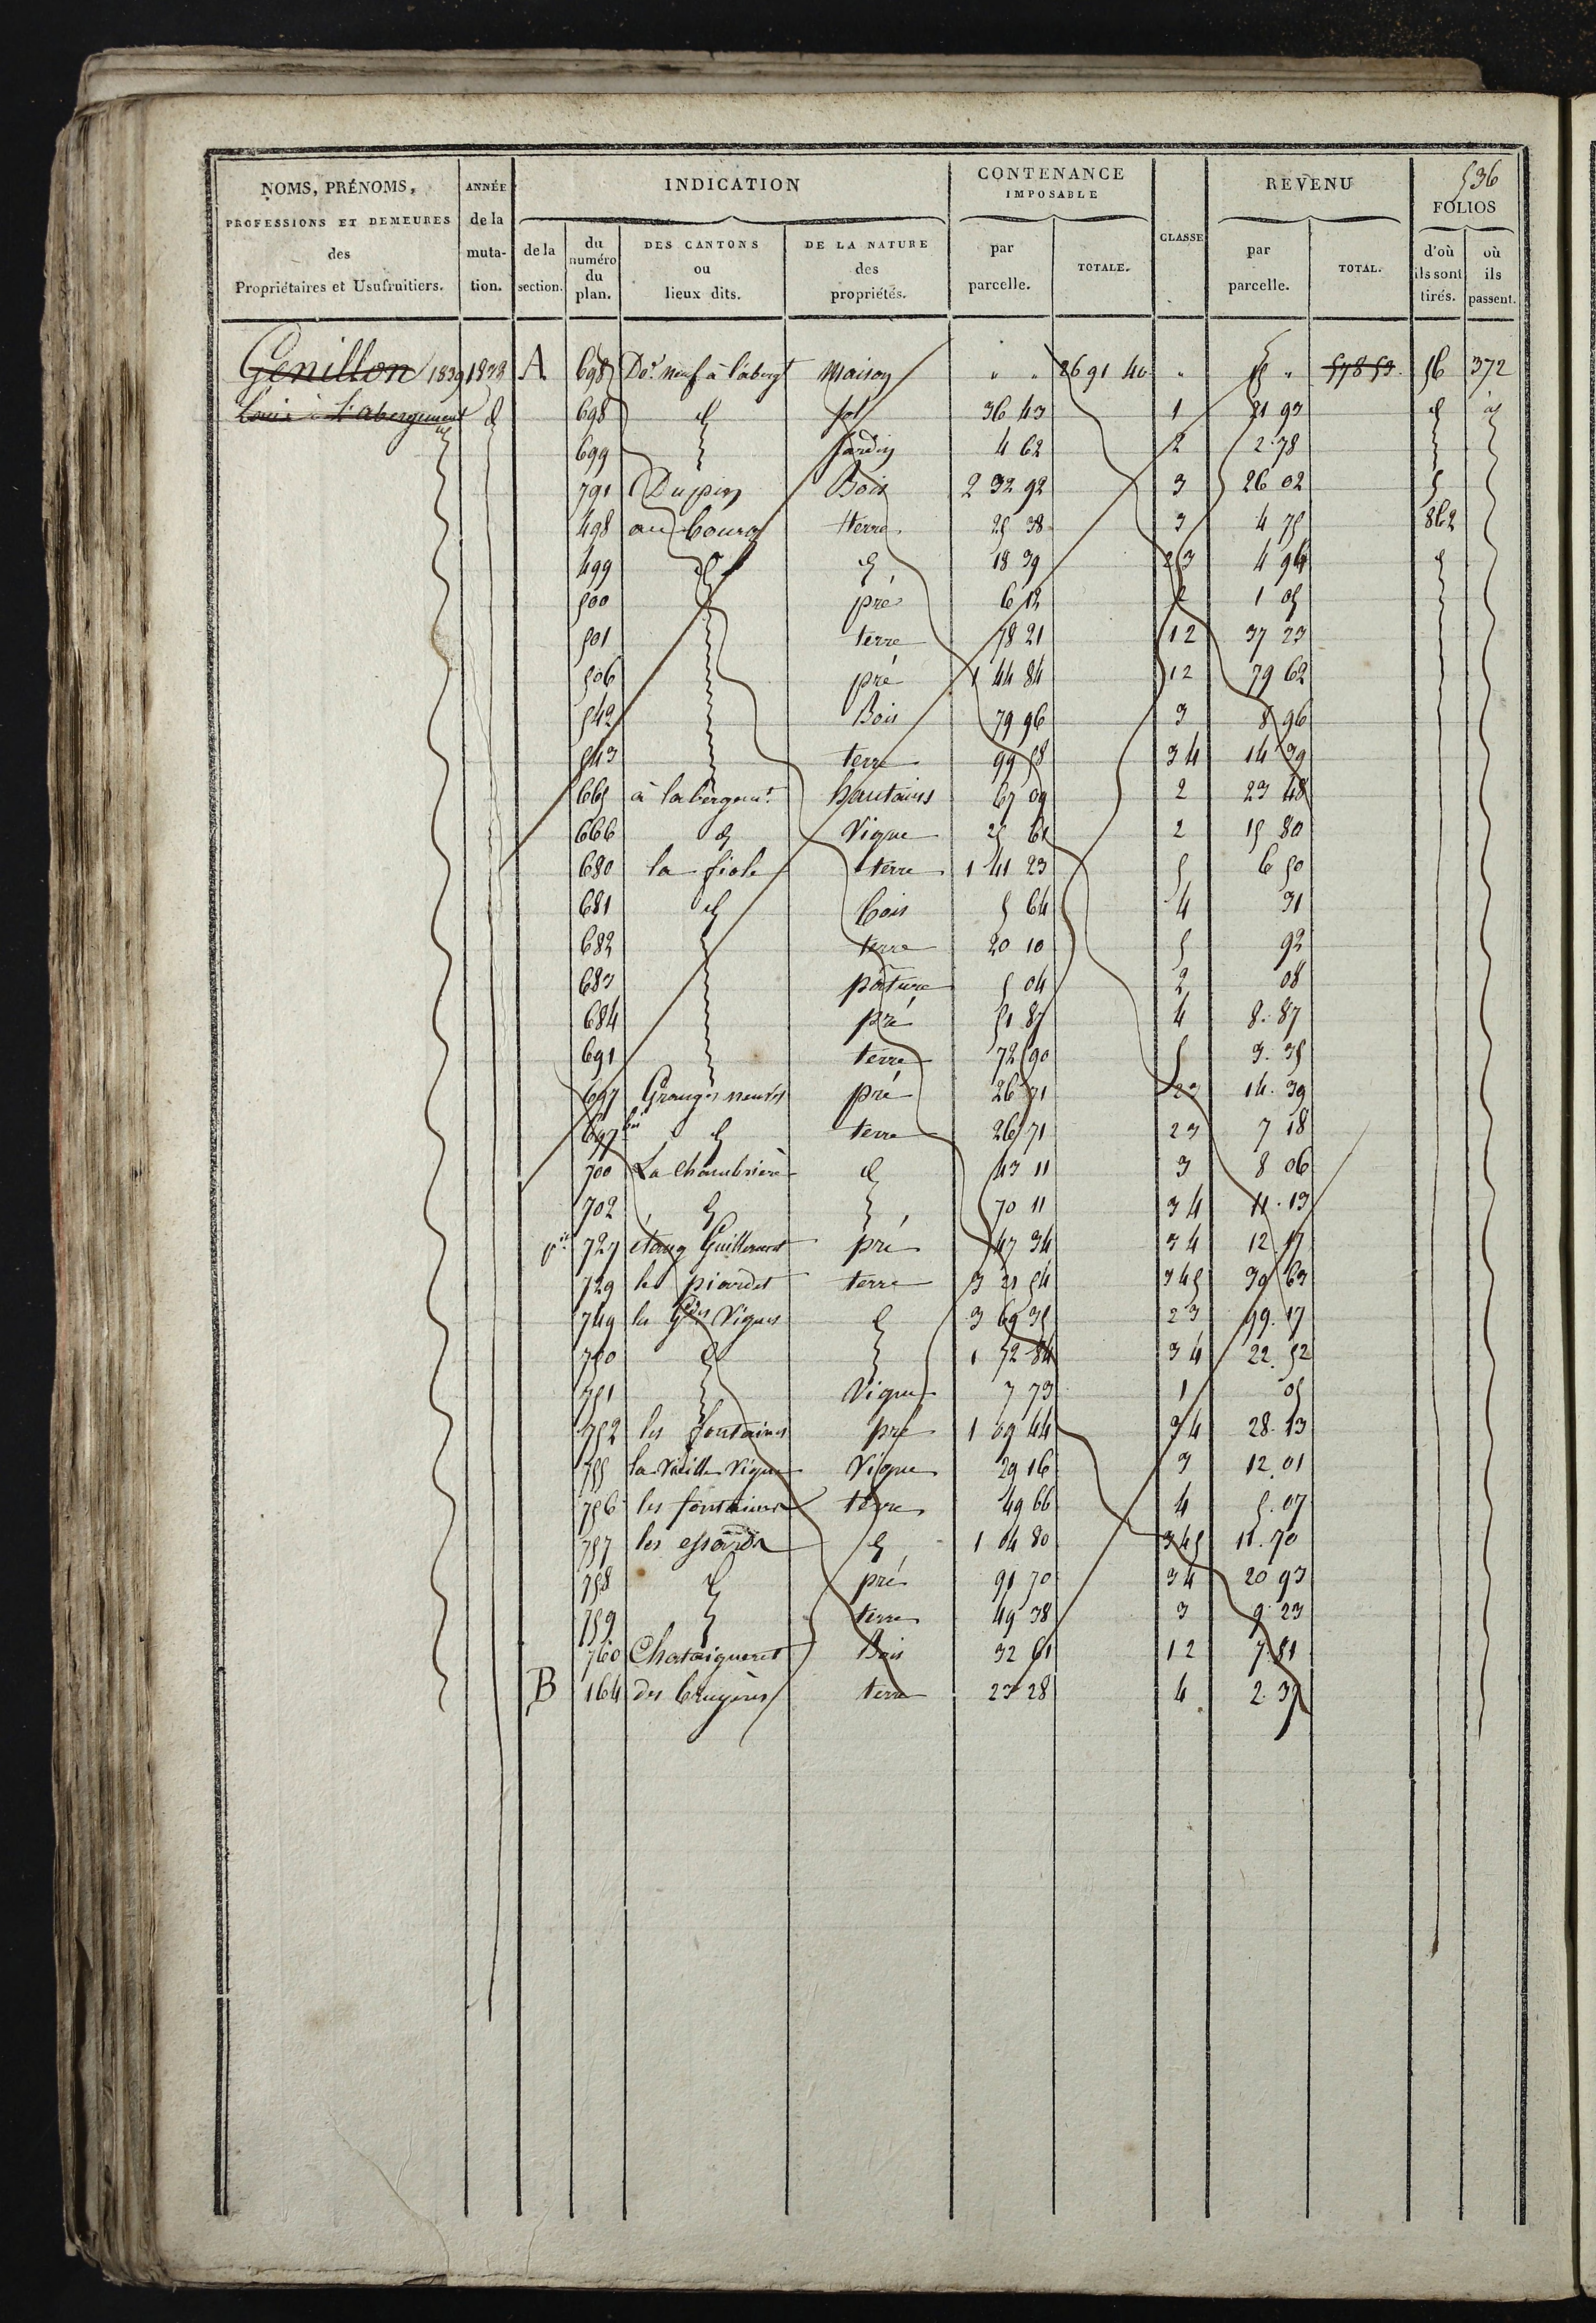 536
NOMS, PRÉNOMS, PROFESSIONS ET DEMEURES des Propriétaires et Usufruitiers.
ANNÉE de la mutation.
INDICATION
de la section.
du numéro du plan.
DES CANTONS ou lieux dits.
DE LA NATURE des propriétés.
CONTENANCE IMPOSABLE
par parcelle.
TOTALE.
CLASSE
REVENU
par parcelle.
TOTAL.
FOLIOS
d'où ils sont tirés.
où ils passent.
Genillon 1839 1838 A 698 neuf à l'aberg.t Maison " " 26 91 40 " " 578 53 56 372
Louis à L'abergement d 698 d sol 36 43 1 21 93 d d
699 Jardin 4 62 2 2.78
791 Dupin Bois 2 32 92 3 26 02
498 au bourg terre 25 38 3 4 75 862
499 d d 18 39 2 3 4 94 d
500 pré 6 12 2 1 05
501 terre 78 21 1 2 37 23
506 pré 1 44 84 1 2 79 62
542 Bois 79 96 3 8 96
543 terre 99 58 3 4 14 39
665 à labergem.t hautains 67 09 2 23 48
666 d Vigne 25 61 2 15 80
680 la fiole terre 1 41 23 5 6 50
681 d bois 5 64 4 31
682 terre 20 10 5 92
683 pature 5 04 2 08
684 pré 51 87 4 8.87
691 terre 72 90 5 3.35
697 Granges neuves pré 26 71 2 3 14.39
697 bis d terre 26 71 2 3 7 18
700 La Chambrière d 43 11 3 8 06
702 d 70 11 3 4 11.13
p.ie 727 étang Guillermet pré 47 34 3 4 12 17
729 les piardet terre 3 21 54 3 4 5 30 63
749 les Gdes Vignes d 3 69 35 2 3 99.17
750 d 1 72 84 3 4 22.52
751 Vigne 7 73 1 05
752 les fontaines pré 1 09 44 3 4 28.13
755 la Vieille Vigne Vigne 29 16 3 12.01
756 les fontaines terre 49 66 4 5.07
757 les essards d 1 04 80 3 4 5 11.70
758 d pré 91 70 3 4 20 93
759 terre 49 38 3 9.23
760 Chataigneret Bois 32 61 1 2 7.81
B 164 des bruyères terre 23 28 4 2.37